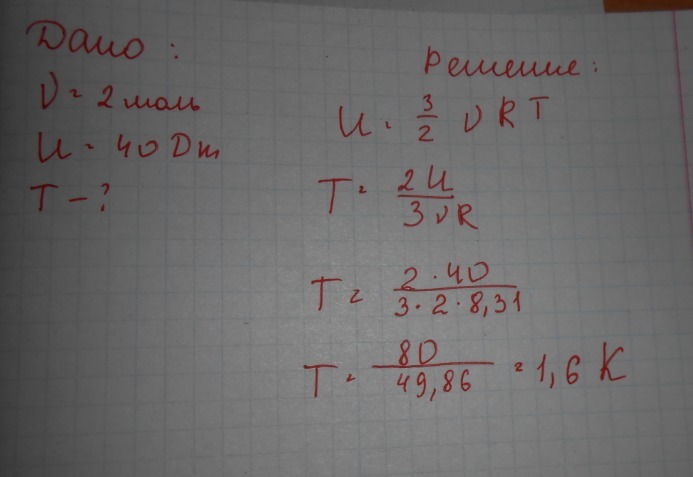 Дано:
ν = 2 моль
U = 40 Дж
T - ?
Решение:
U = 3/2 ν R T
T = 2U / 3νR
T = 2·40 / 3·2·8,31
T = 80 / 49,86 = 1,6 K